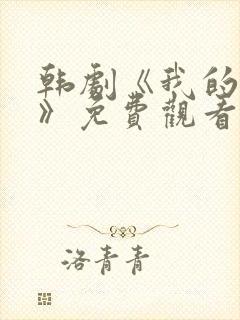 韩剧《我的
》免費觀看
洛青青